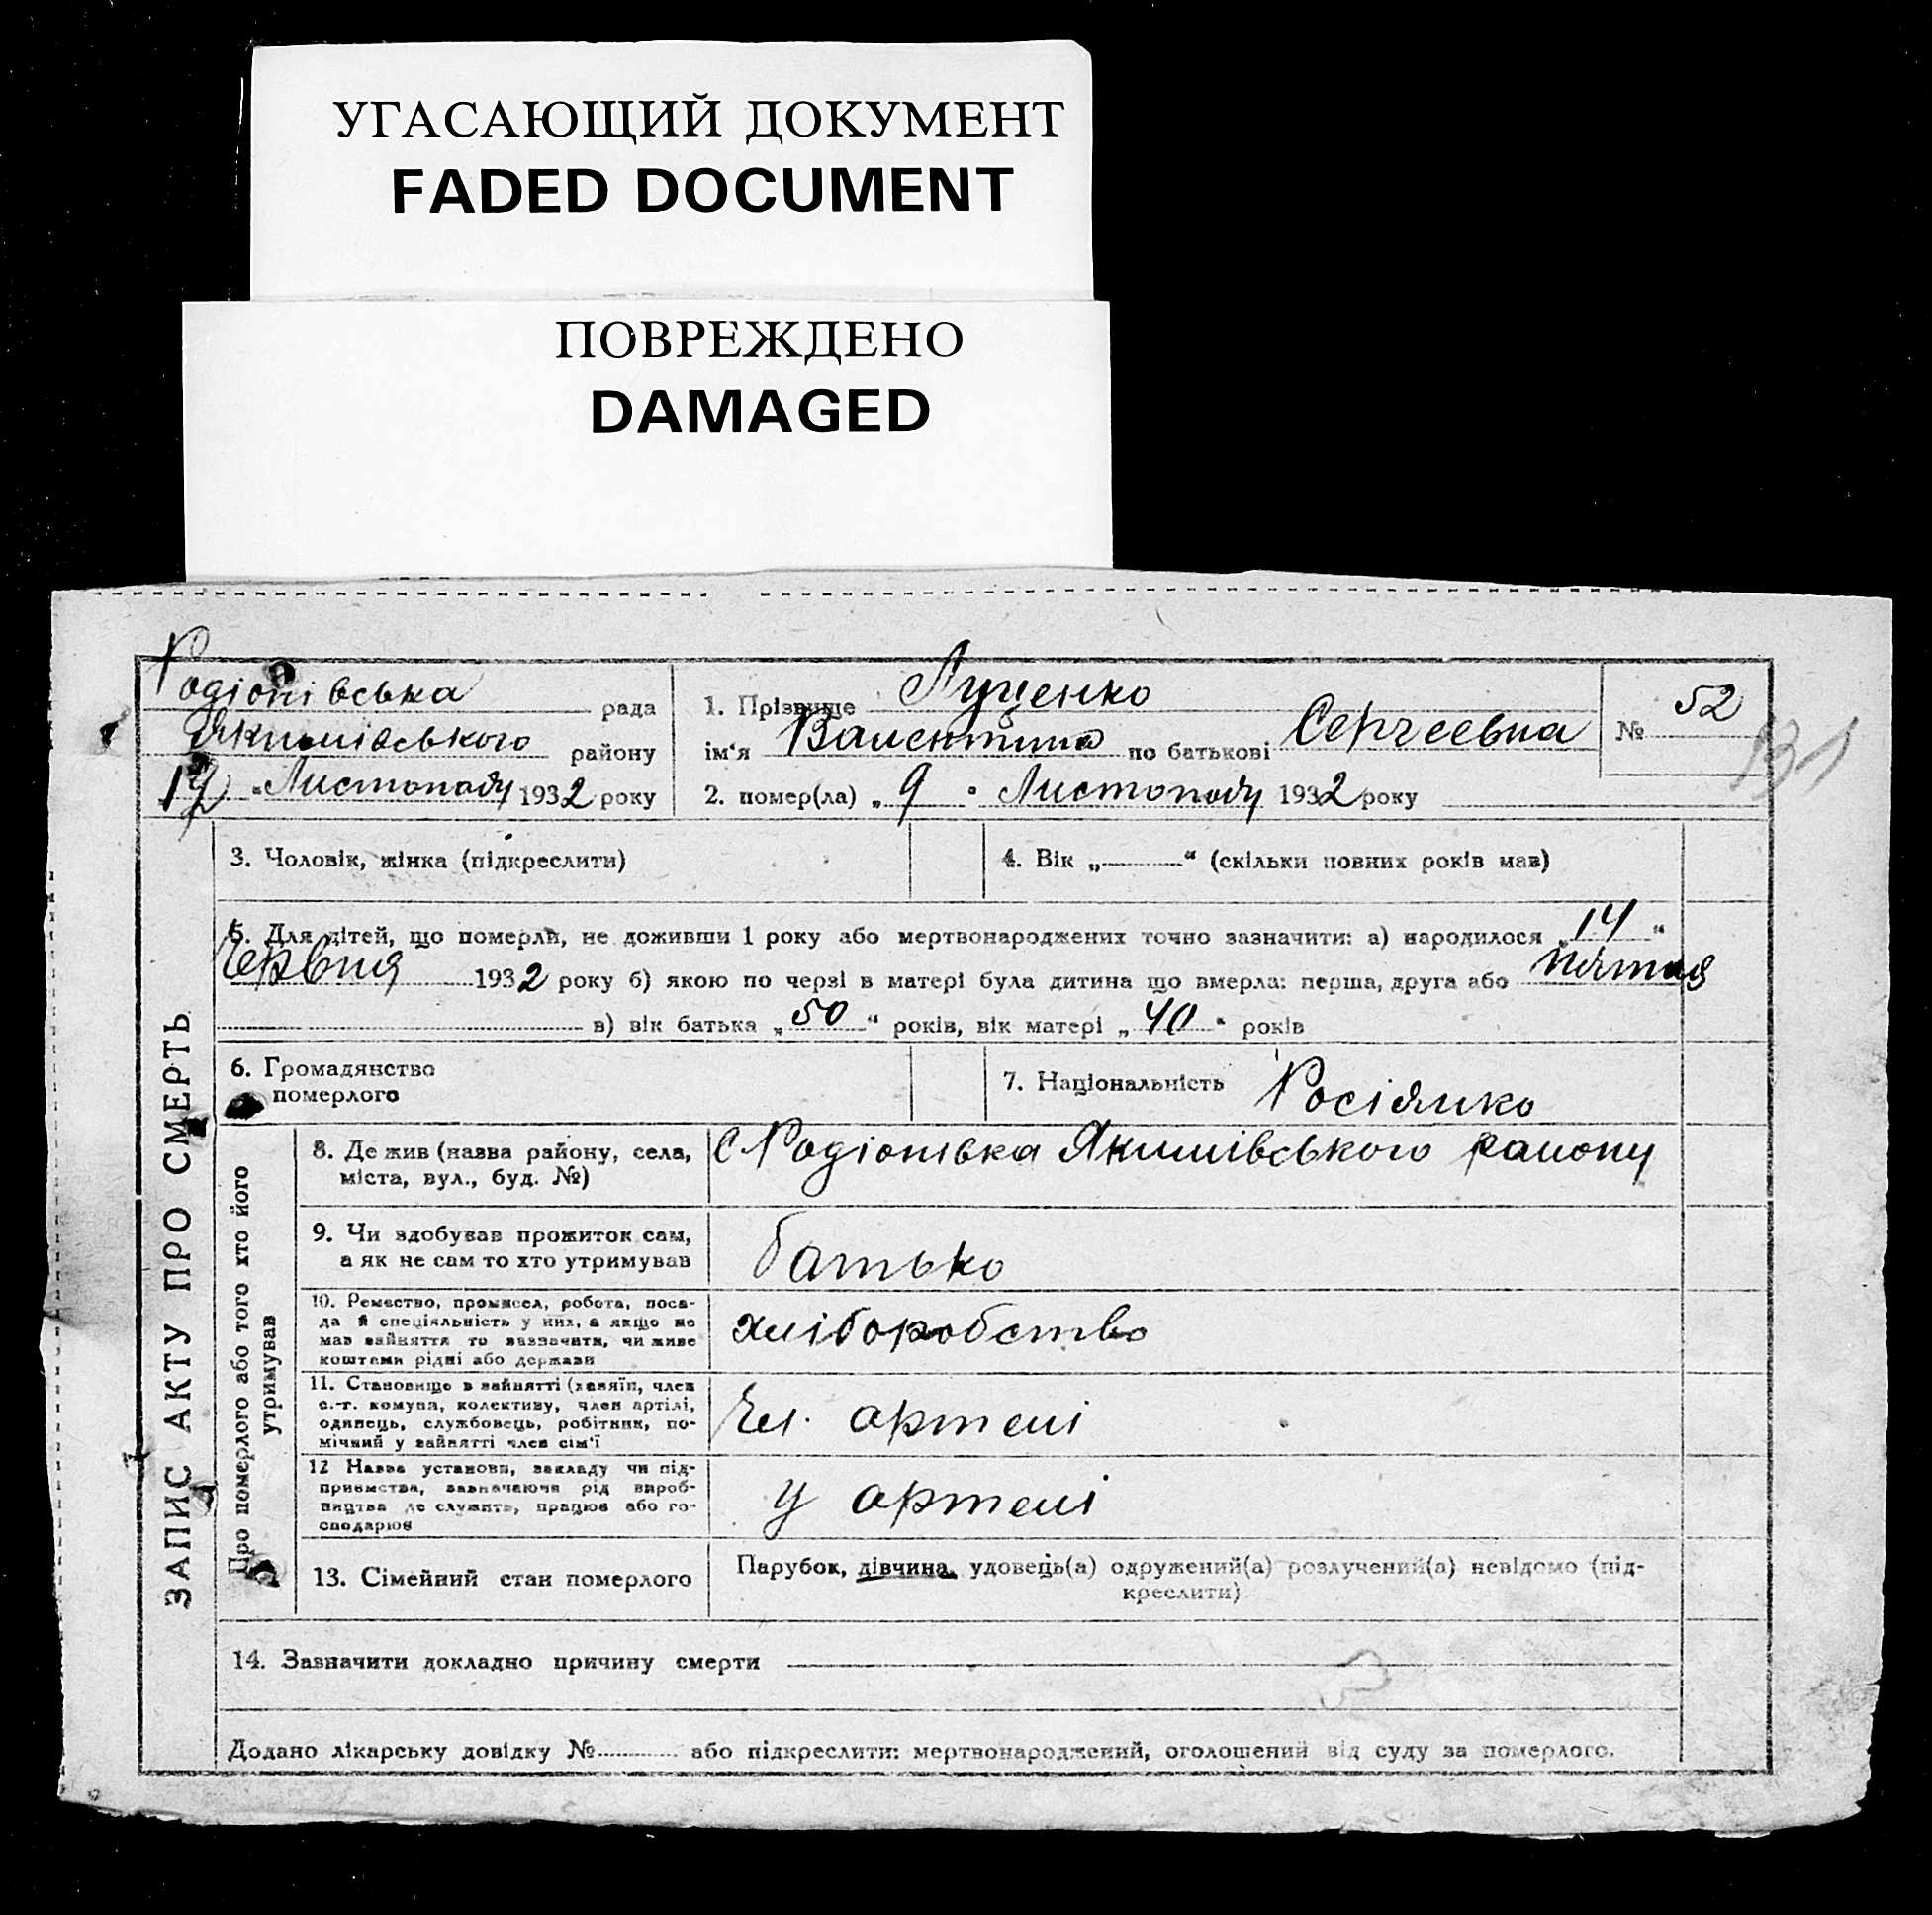 УГАСАЮЩИЙ ДОКУМЕНТ
FADED DOCUMENT
ПОВРЕЖДЕНО
DAMAGED
Родіонівська рада
Якимівського району
12 „Листопаду 1932 року
1. Прізвище Луценко
ім'я Валентина по батькові Сергеевна
2. помер(ла) „9" Листопаду 1932 року
№ 52
131
ЗАПИС АКТУ ПРО СМЕРТЬ
3. Чоловік, жінка (підкреслити)
4. Вік „ " (скільки повних років мав)
5. Для дітей, що померли, не доживши 1 року або мертвонароджених точно зазначити: а) народилося „14"
Червня 1932 року б) якою по черзі в матері була дитина що вмерла: перша, друга або пятая
в) вік батька „50" років, вік матері „40" років
6. Громадянство
померлого
7. Національність Росіянко
Про померлого або того хто його
утримував
8. Де жив (назва району, села,
міста, вул., буд. №)
С Родіонівка Якимівського району
9. Чи здобував прожиток сам,
а як не сам то хто утримував
батько
10. Ремество, промисел, робота, поса-
да й спеціяльність у них, а якщо не
мав зайняття то зазначити, чи живе
коштами рідні або держави
хліборобство
11. Становище в зайнятті (хазяїн, член
с.-г. комуни, колективу, член артілі,
одинець, службовець, робітник, по-
мічний у зайнятті член сім'ї
Чл. артелі
12 Назва установи, закладу чи під-
приємства, зазначаючи рід вироб-
ництва де служить, працює або го-
сподарює
у артелі
13. Сімейний стан померлого
Парубок, дівчина, удовець(а) одружений(а) розлучений(а) невідомо (під-
креслити)
14. Зазначити докладно причину смерти
Додано лікарську довідку № або підкреслити: мертвонароджений, оголошений від суду за померлого.